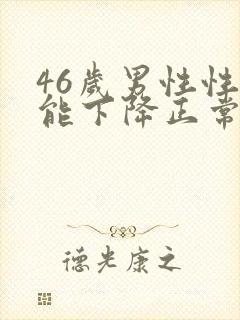 46岁男性性
能下降正常
德光康之